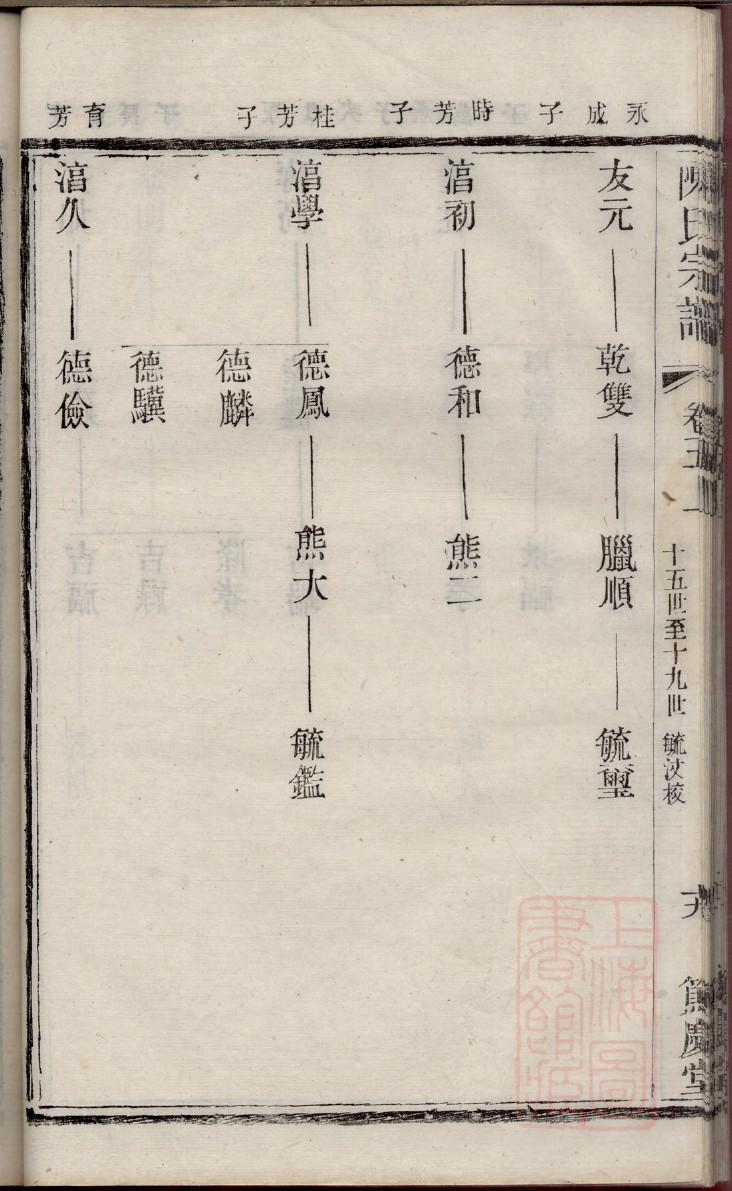 陳氏宗譜
卷五上
十五世至十九世
毓汶校
篤慶堂
永成子
友元
乾雙
臘順
毓璽
時芳子
淯初
德和
熊二
桂芳子
淯學
德鳳
熊大
毓鑑
德麟
德驥
育芳
淯久
德儉
上海圖書館藏